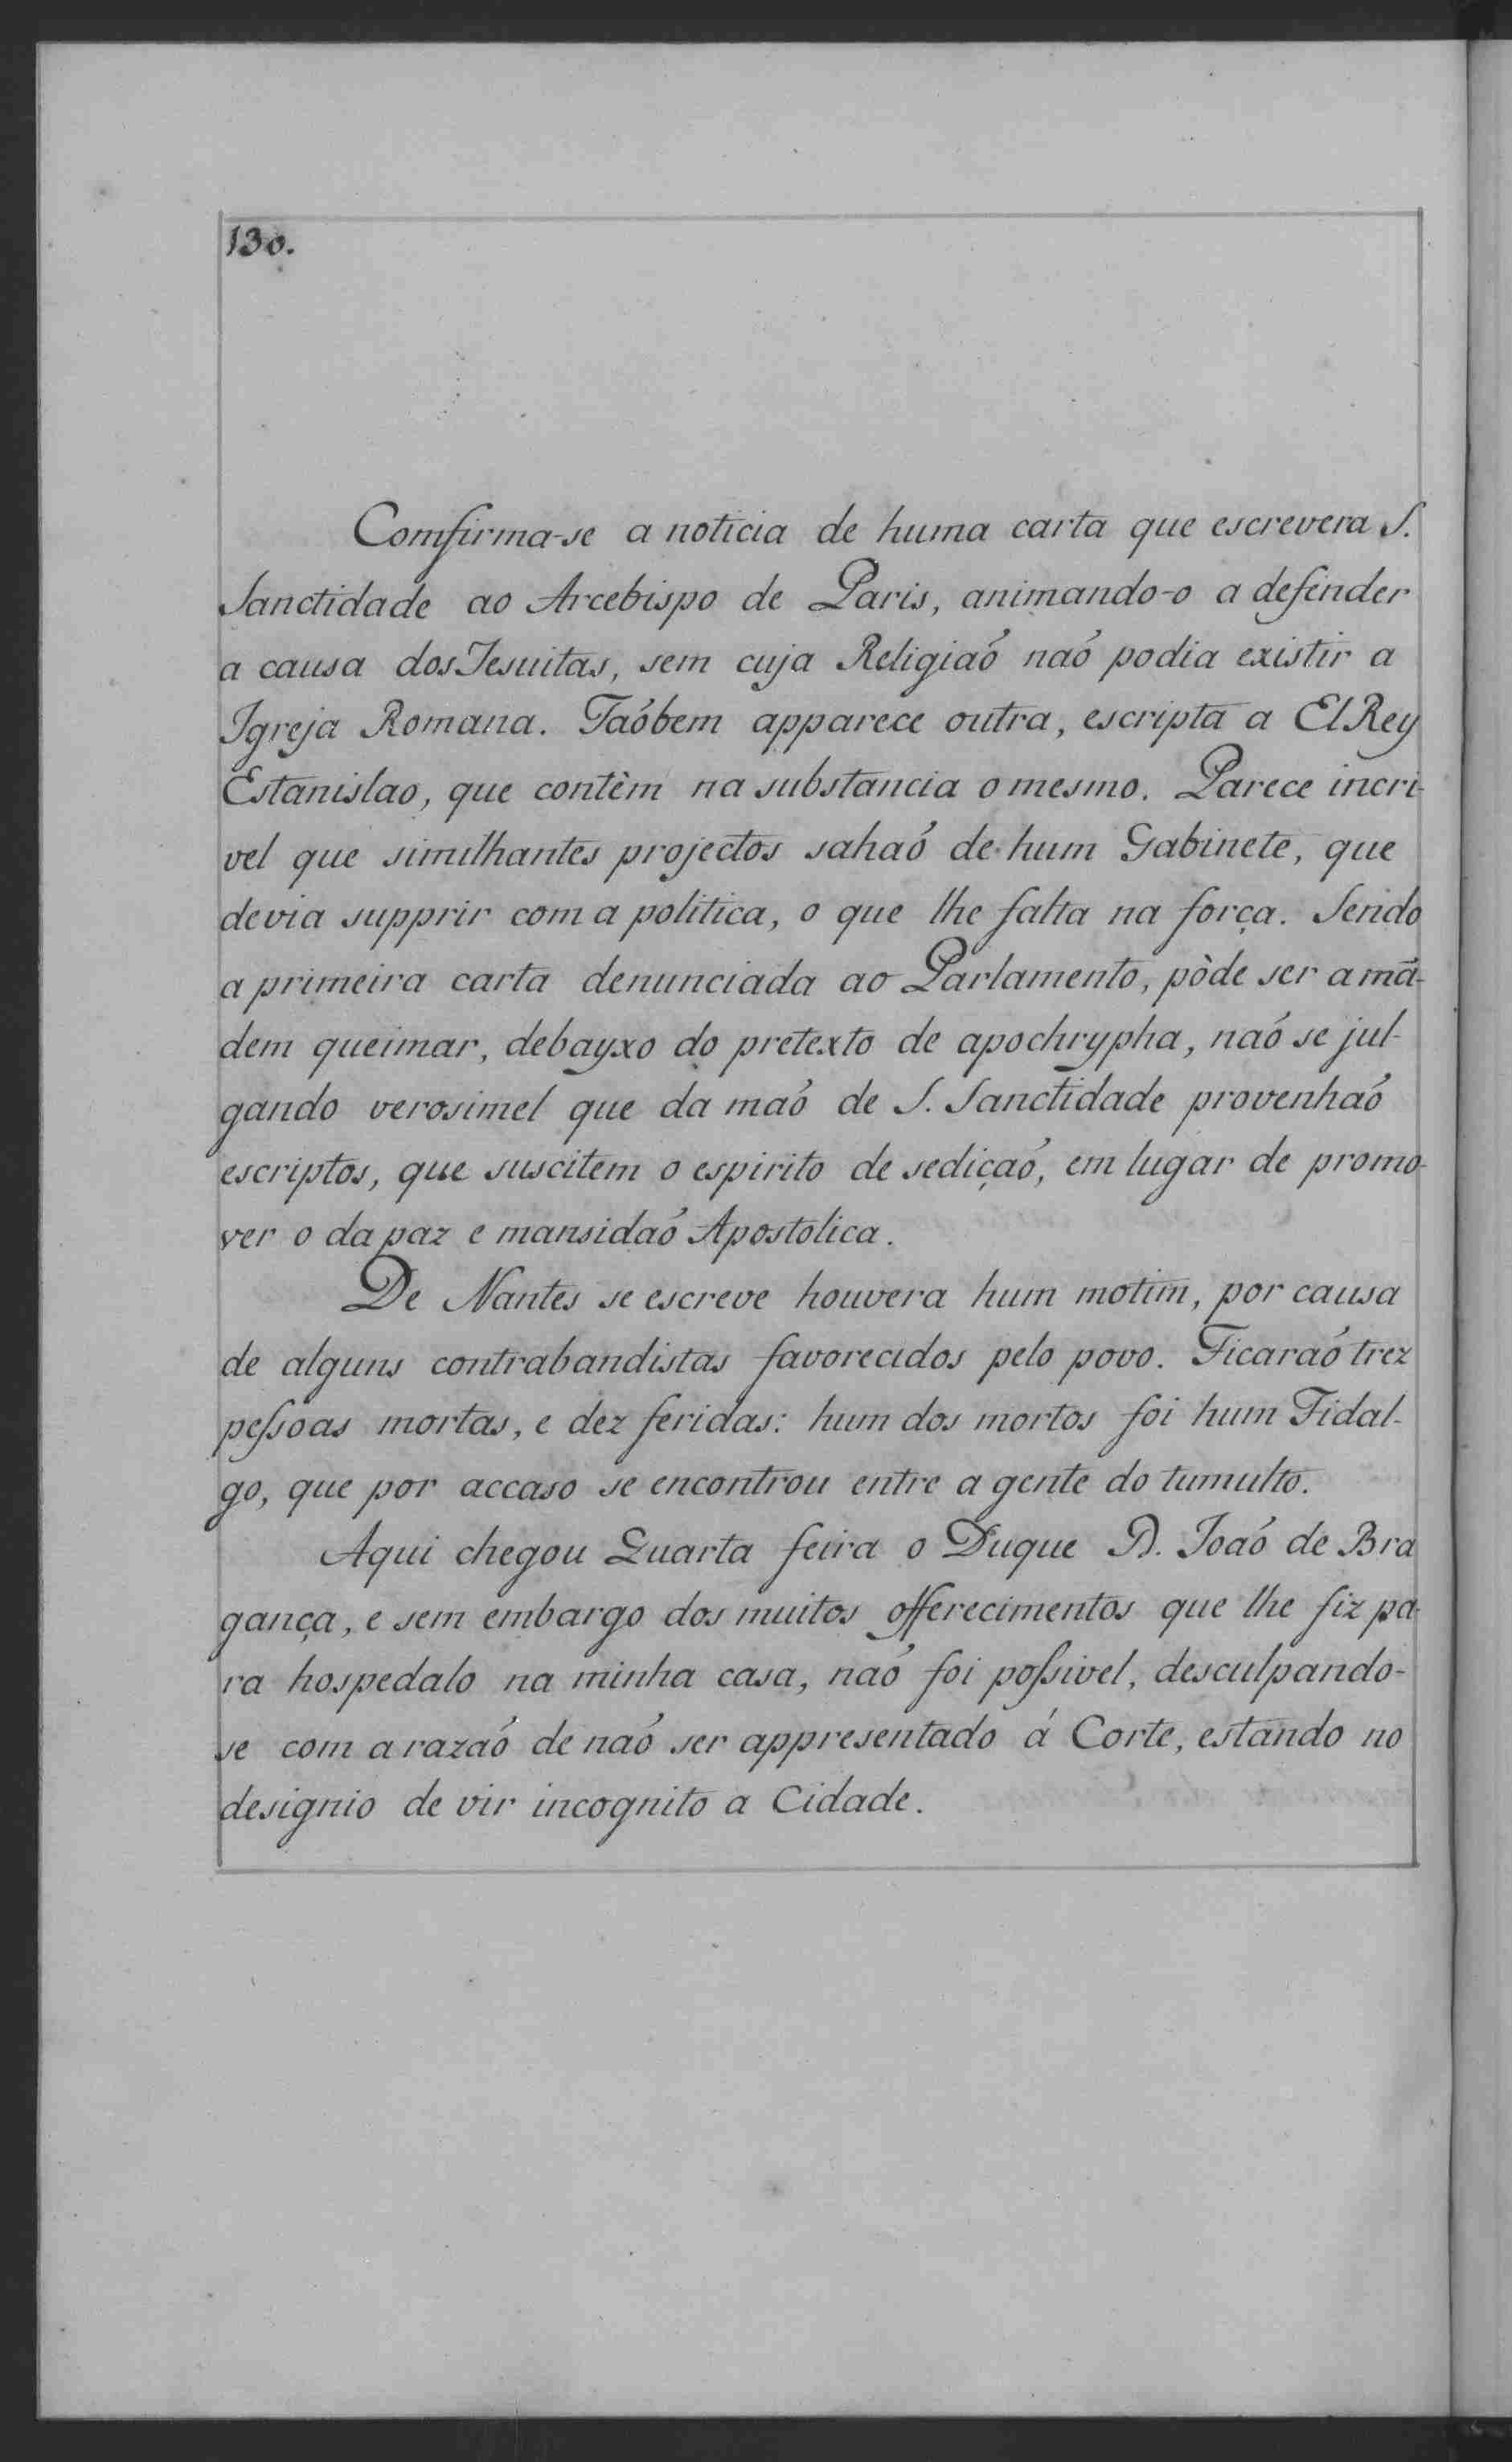 130.
Comfirma-se a noticia de huma carta que escrevera S.
Sanctidade ao Arcebispo de Paris, animando-o a defender
a causa dos Jesuitas, sem cuja Religiaó naó podia existir a
Igreja Romana. Taóbem apparece outra, escripta a El Rey
Estanislao, que contêm na substancia o mesmo. Parece incri-
vel que similhantes projectos sahaó de hum Gabinete, que
devia supprir com a politica, o que lhe falta na força. Sendo
a primeira carta denunciada ao Parlamento, pòde ser a mã-
dem queimar, debayxo do pretexto de apochrypha, naó se jul-
gando verosimel que da maó de S. Sanctidade provenhaó
escriptos, que suscitem o espirito de sediçaó, em lugar de promo-
ver o da paz e mansidaó Apostolica.
De Nantes se escreve houvera hum motim, por causa
de alguns contrabandistas favorecidos pelo povo. Ficaraó trez
peſsoas mortas, e dez feridas: hum dos mortos foi hum Fidal-
go, que por accaso se encontrou entre a gente do tumulto.
Aqui chegou Quarta feira o Duque D. Joaó de Bra
gança, e sem embargo dos muitos offerecimentos que lhe fiz pa-
ra hospedalo na minha casa, naó foi poſsivel, desculpando-
se com a razaó de naó ser appresentado á Corte, estando no
designio de vir incognito a Cidade.